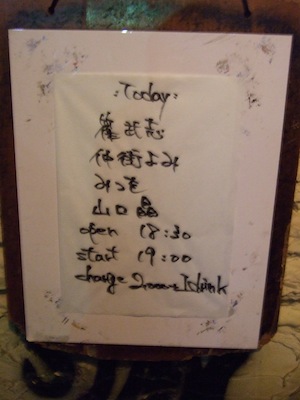 :Today:
武志
仲街よみ
みつを
山口晶
open 18:30
start 19:00
charge 2000+1drink